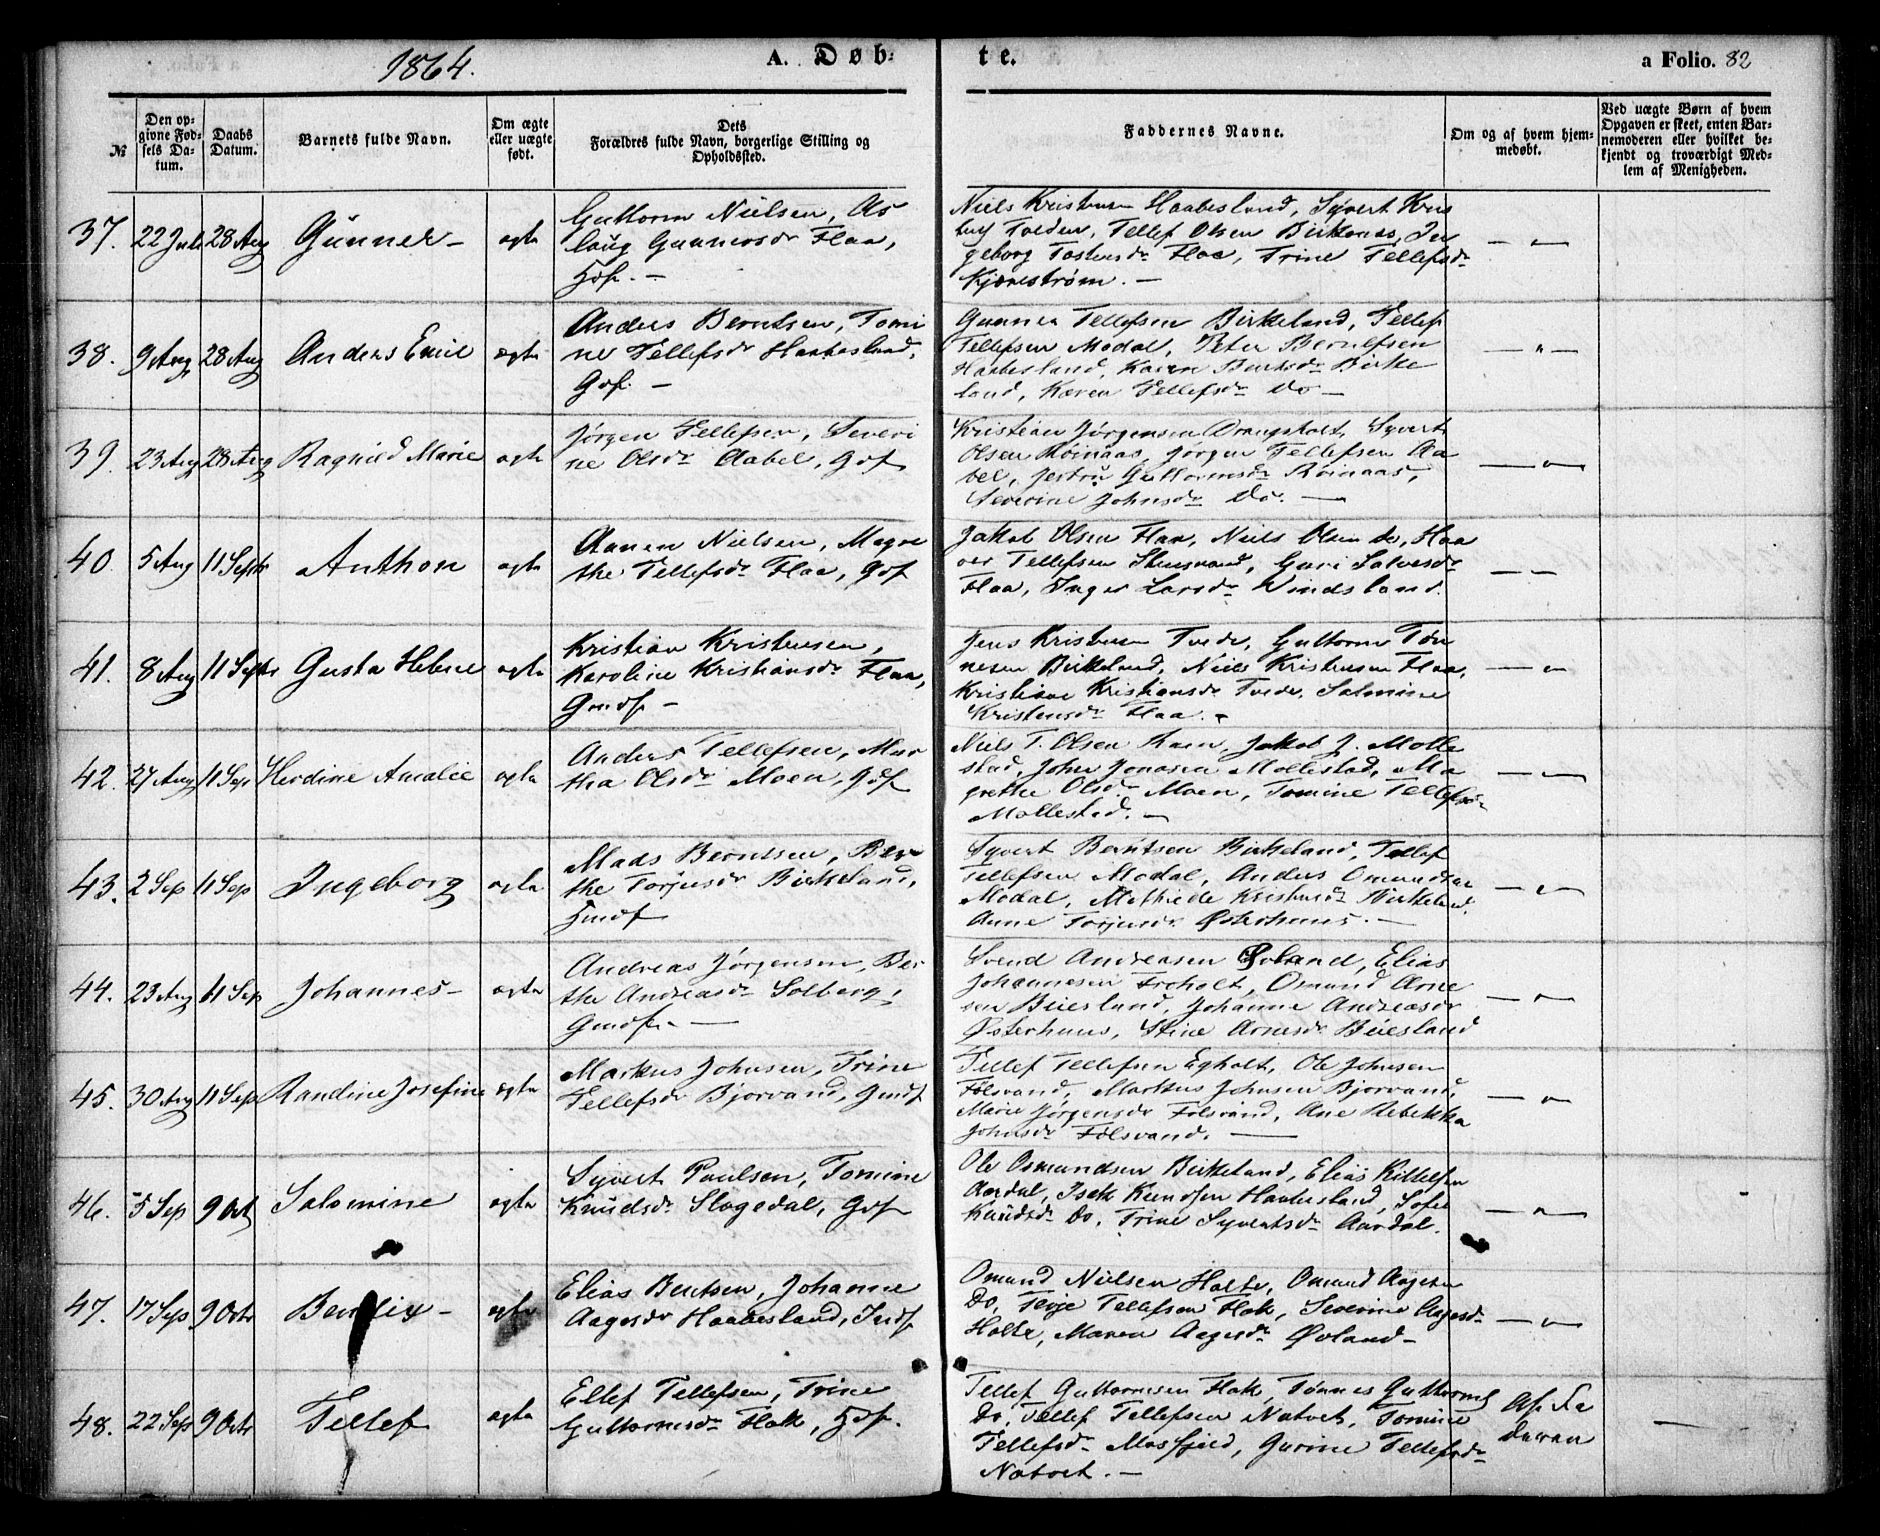 1864.
A. Døb-
te.
a Folio. 82
№
Den op-
givne Fød-
sels Da-
tum.
Daabs
Datum.
Barnets fulde Navn.
Om ægte
eller uægte
født.
Dets
Forældres fulde Navn, borgerlige Stilling og
Opholdssted.
Faddernes Navne.
Om og af hvem hjem-
medøbt.
Ved uægte Børn af hvem
Opgaven er skeet, enten Bar-
nemoderen eller hvilket be-
kjendt og troværdigt Med-
lem af Menigheden.
37. 22 Juli 28 Aug Gunner - ægte
Guttorm Nielsen, As
laug Gunnersdr Flaa,
Hdf. -
Niels Kristensen Haabesland, Syvert Kris
Tveden, Tellef Olsen Birkenes, In
geborg Tostensdr Flaa, Trine Tellefsdr
Kjærestrøm. -
38. 9 Aug 28 Aug Anders Emil ægte
Anders Berntsen, Tomi
ne Tellefsdr Haabesland,
Gdf. -
Gunner Tellefsen Birkeland, Tellef
Tellefsen Modal, Peter Berntsen
Haabesland, Karen Berntsdr Birke
land, Karen Tellefsdr Do -
39. 23 Aug 28 Aug Ragnild Marie ægte
Jørgen Tellefsen, Severi
ne Olsdr Aabel, Gdf
Kristian Jørgensen Drangsholt, Syvert
Olsen Røinaas, Jørgen Tellefsen Aa
bel, Jertru Guttormsdr Røinaas,
Severine Johnsdr Do. -
40. 5 Aug 11 Septr Anthon ægte
Aanen Nielsen, Magre
the Tellefsdr Flaa, Gdf
Jakob Olsen Flaa, Niels Olsen Do, Haa
ver Tellefsen Stensvand, Guri Salvesdr
Flaa, Inger Larsdr Vindsland.
41. 8 Aug 11 Septr Gusta Helene ægte
Kristian Kristensen,
Karoline Kristiansdr Flaa,
Gmdf -
Jens Kristensen Tvede, Guttorm Tøn
nesen Birkeland, Niels Kristensen Flaa,
Kristiane Kristiansdr Tvede, Salomine
Kristensdr Flaa. -
42. 27 Aug 11 Sep Herdine Amalie ægte
Anders Tellefsen, Mar
tha Olsdr Moen, Gdf
Niels T. Olsen Moen, Jakob J. Molle
stad, John Jonasen Mollestad, Ma
grethe Olsdr Moen, Tomine Tellefsdr
Mollestad. -
43. 2 Sep 11 Sep Ingeborg ægte
Mads Berntsen, Ber
the Torjusdr Birkeland,
Hmdf
Syvert Berntsen Birkeland, Tellef
Tellefsen Modal, Anders Omundsen
Modal, Mathilde Kristensdr Birkeland,
Anne Torjusdr Østerhuus. -
44. 23 Aug 11 Sep Johannes - ægte
Andreas Jørgensen, Ber
the Andreasdr Solberg,
Gmdf. -
Svend Andreasen Øvland, Elias
Johannesen Froholt, Omund Arne
sen Beiesland, Johanne Andreasdr
Østerhuus, Stine Arnesdr Beiesland
45. 30 Aug 11 Sep Randine Josefine ægte
Markus Johnsen, Trine
Tellefsdr Bjorvand, Gmdf
Tellef Tellefsen Egholt, Ole Johnsen
Følsvand, Markus Johnsen Bjorvand,
Marie Jørgensdr Følsvand, Ane Rebekka
Johnsdr Følsvand. -
46. 5 Sep 9 Oct Salomine ægte
Syvert Paulsen, Tomine
Knudsdr Slogedal, Gdf
Ole Osmundsen Birkeland, Elias Kittelsen
Aardal, Isak Knudsen Haabesland, Sofie
Knudsdr Do, Trine Syvertsdr Aardal.
47. 17 Sep 9 Octr Bendix - ægte
Elias Bentsen, Johanne
Aagesdr Haabesland, Indf
Omund Nielsen Holte, Omund Aagesen
Do, Terje Tellefsen Flak, Severine Aagesdr
Holte, Maren Aagesdr Øvland -
48. 22 Sep 9 Octr Tellef ægte
Ellef Tellefsen, Trine
Guttormsdr Flak, Hdf.
Tellef Guttormsen Flak, Tønnes Guttorms
Do, Tellef Tellefsen Natvet, Tomine
Tellefsdr Mosfjeld, Gurine Tellefsdr
Natvet. -
Af Fa
deren